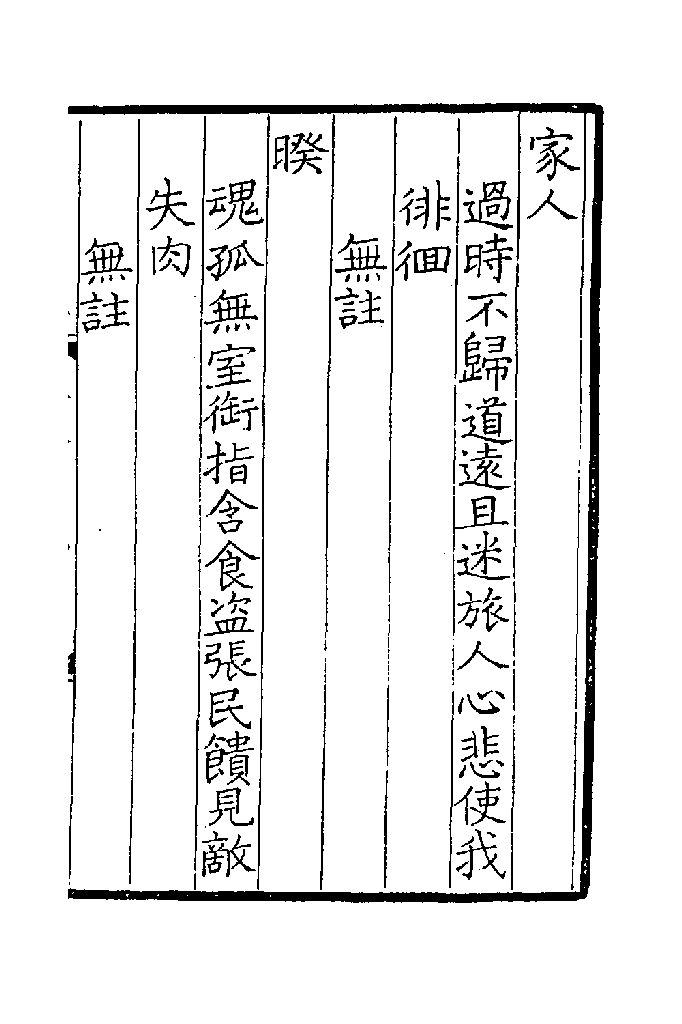 家人
過時不歸道遠且迷旅人心悲使我
徘徊
無註
睽
魂孤無室銜指含食盜張民饋見敵
失肉
無註